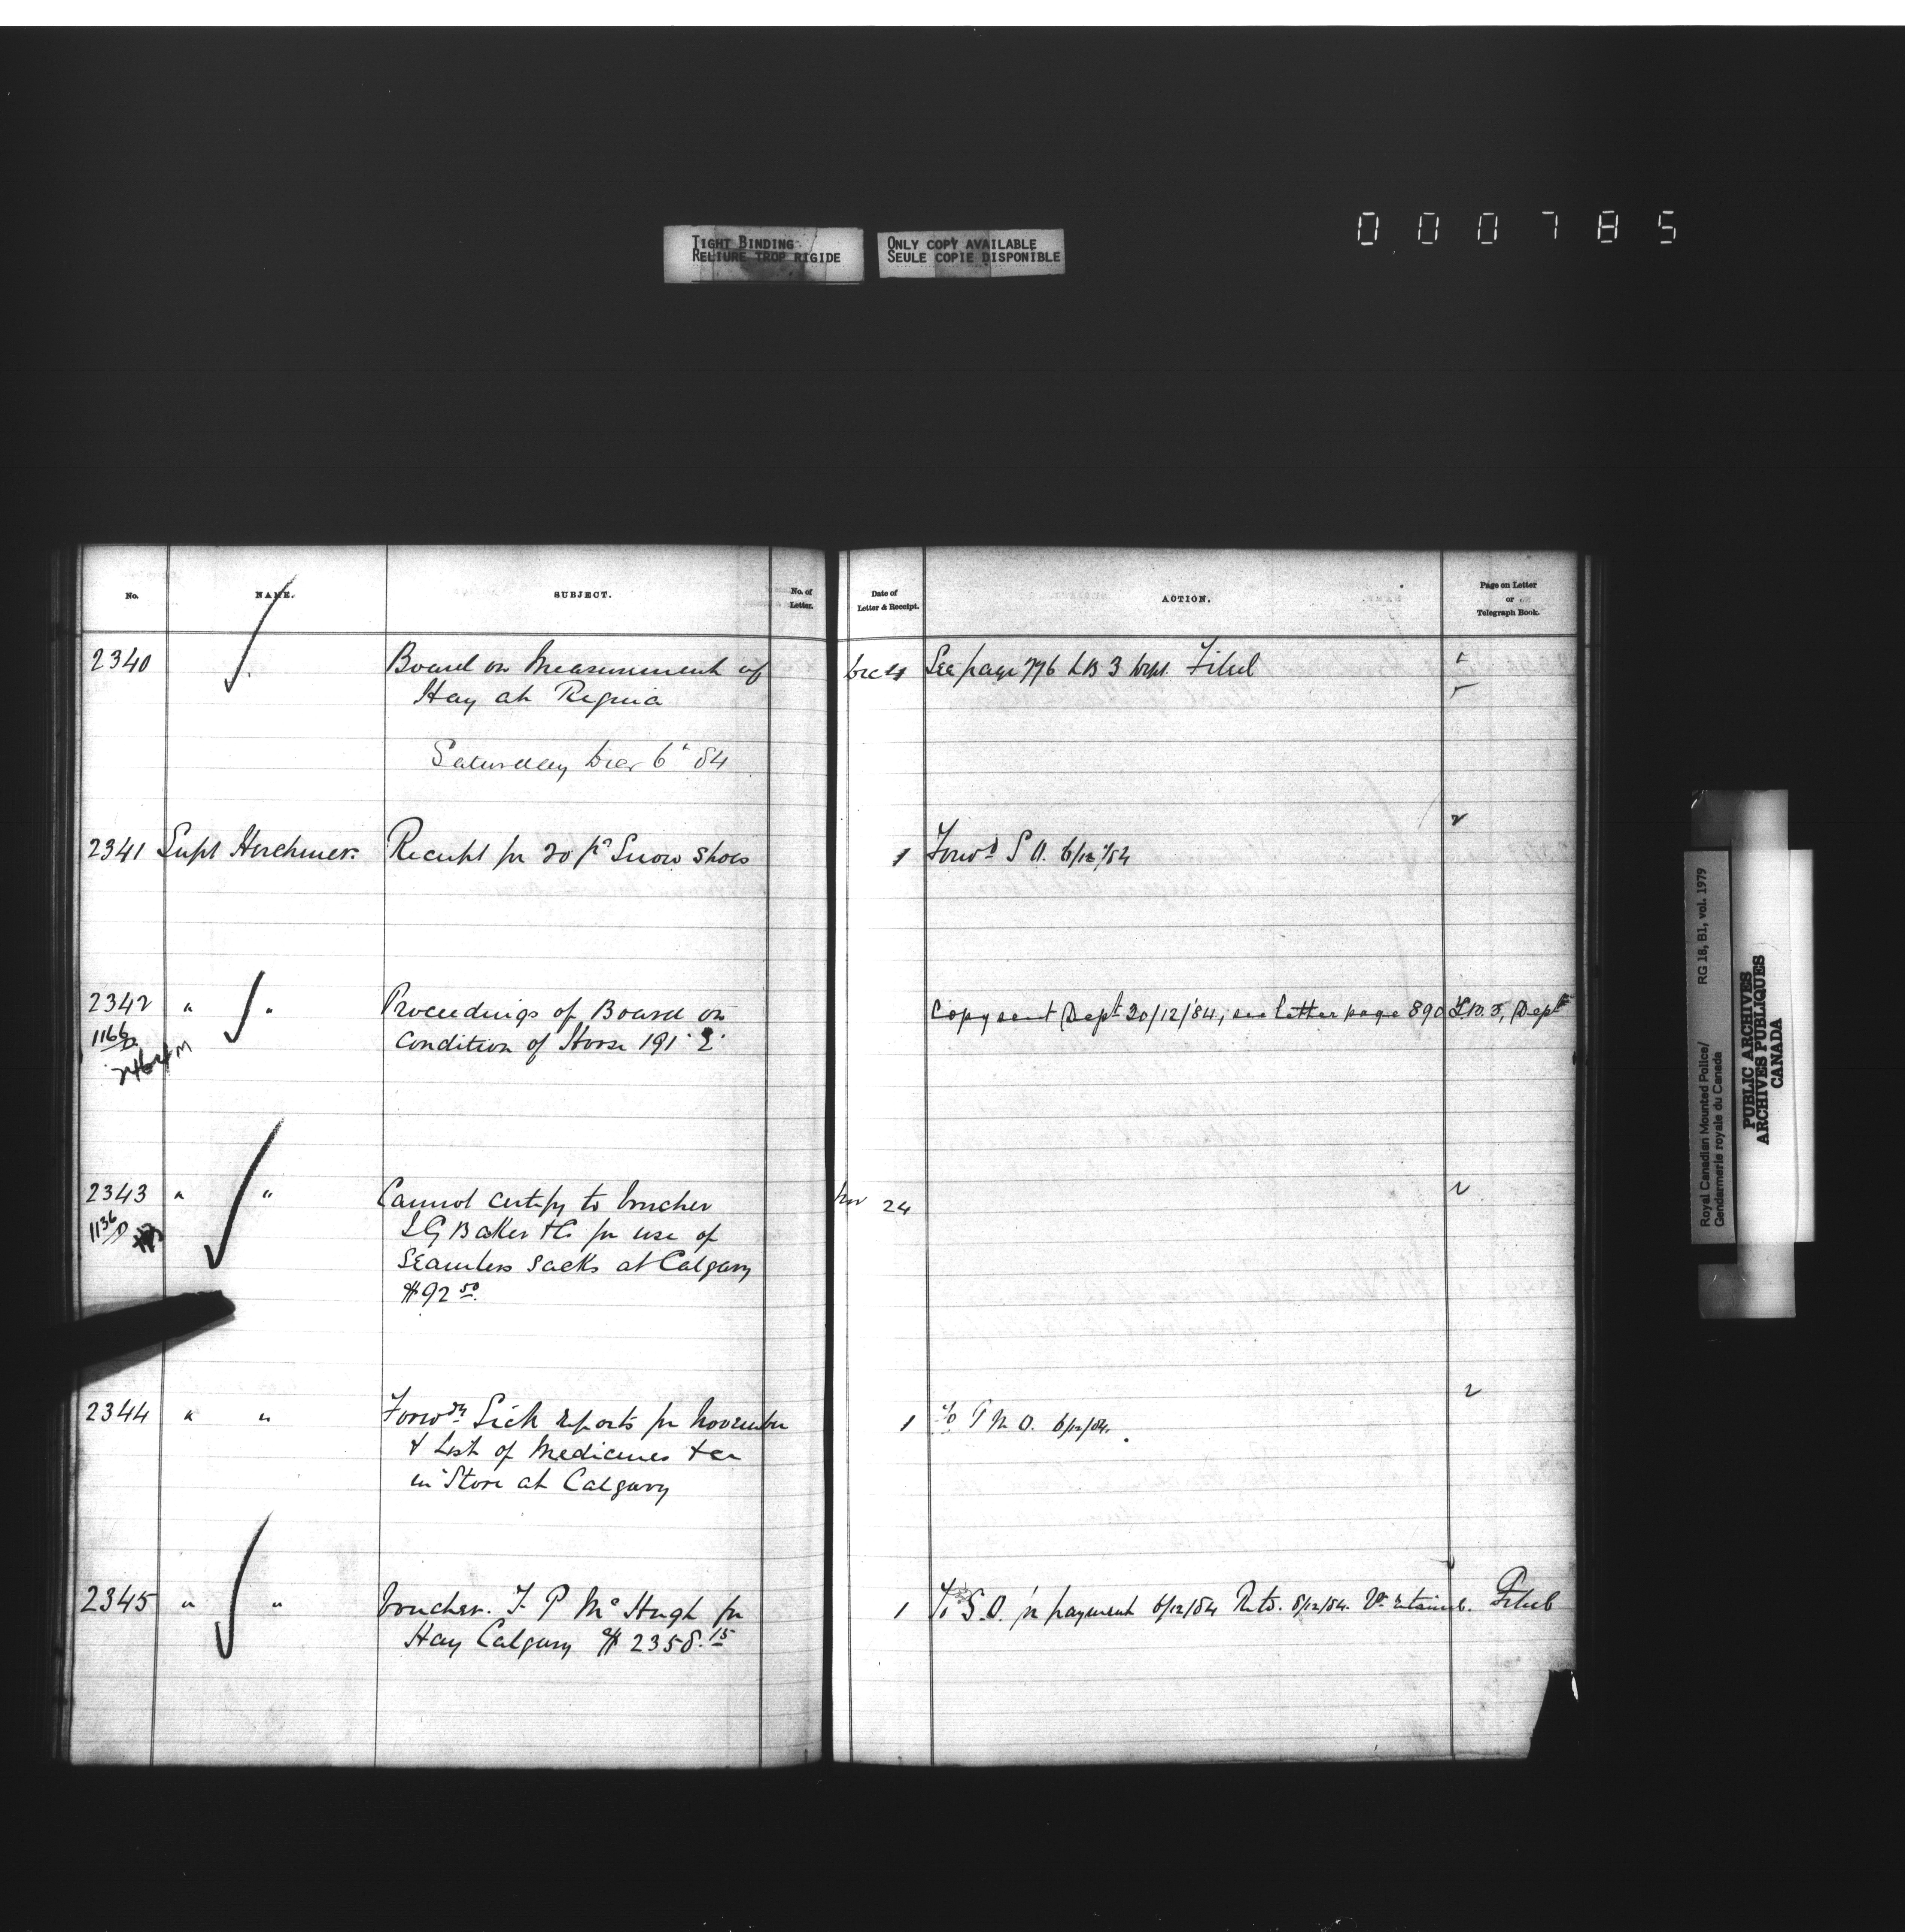 000785
TIGHT BINDING
RELIURE TROP RIGIDE
ONLY COPY AVAILABLE
SEULE COPIE DISPONIBLE
No. NAME. SUBJECT. No. of Letter. Date of Letter & Receipt. ACTION. Page on Letter or Telegraph Book.
2340 Board on Measurement of Dec 4 See page 776 LB 3 Dept. Filed
Hay at Regina
Saturday Decr 6th 84
2341 Supt Herchmer. Receipt for 20 prs Snow Shoes 1 Forwd S O. 6/12/84
2342 " " Proceedings of Board on Copy sent Dept 20/12/'84, see letter page 890 L.B. 3, Dept
1166
Condition of Horse 191 "E"
2343 " " Cannot certify to Voucher Nov 24
1136
I G Baker & Co for use of
Seamless Sacks at Calgary
$92 50
2344 " " Forwdg Sick reports for November 1 To P M O. 6/12/84.
& List of Medicines &c
in Store at Calgary
2345 " " Voucher. F. P McHugh for 1 To S.O. for payment 6/12/84 Retd. 8/12/84. Vr retained. Filed
Hay Calgary $2358.15
Royal Canadian Mounted Police/ RG 18, B1, vol. 1979
Gendarmerie royale du Canada
PUBLIC ARCHIVES
ARCHIVES PUBLIQUES
CANADA